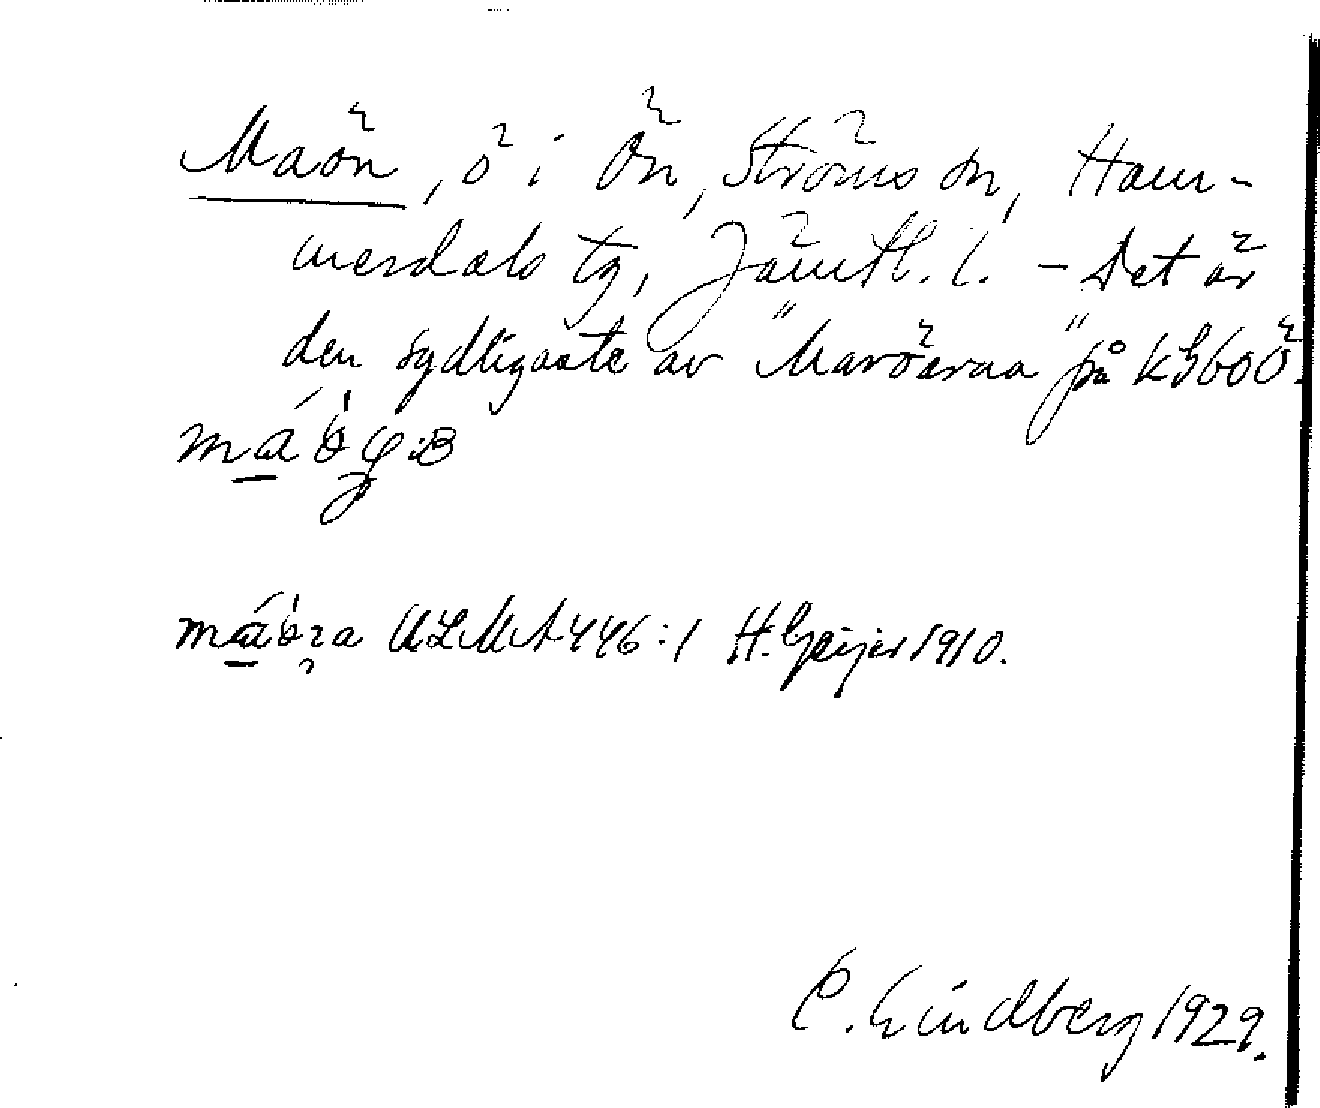 Maön, ö i Ön, Ströms sn, Ham-
merdals tg, Jämtl. l. - Det är
den sydligaste av "Maröarna" på kbl 60 Ö.
ULMA 446:1 H. Geijer 1910.
C. Lindberg 1929.